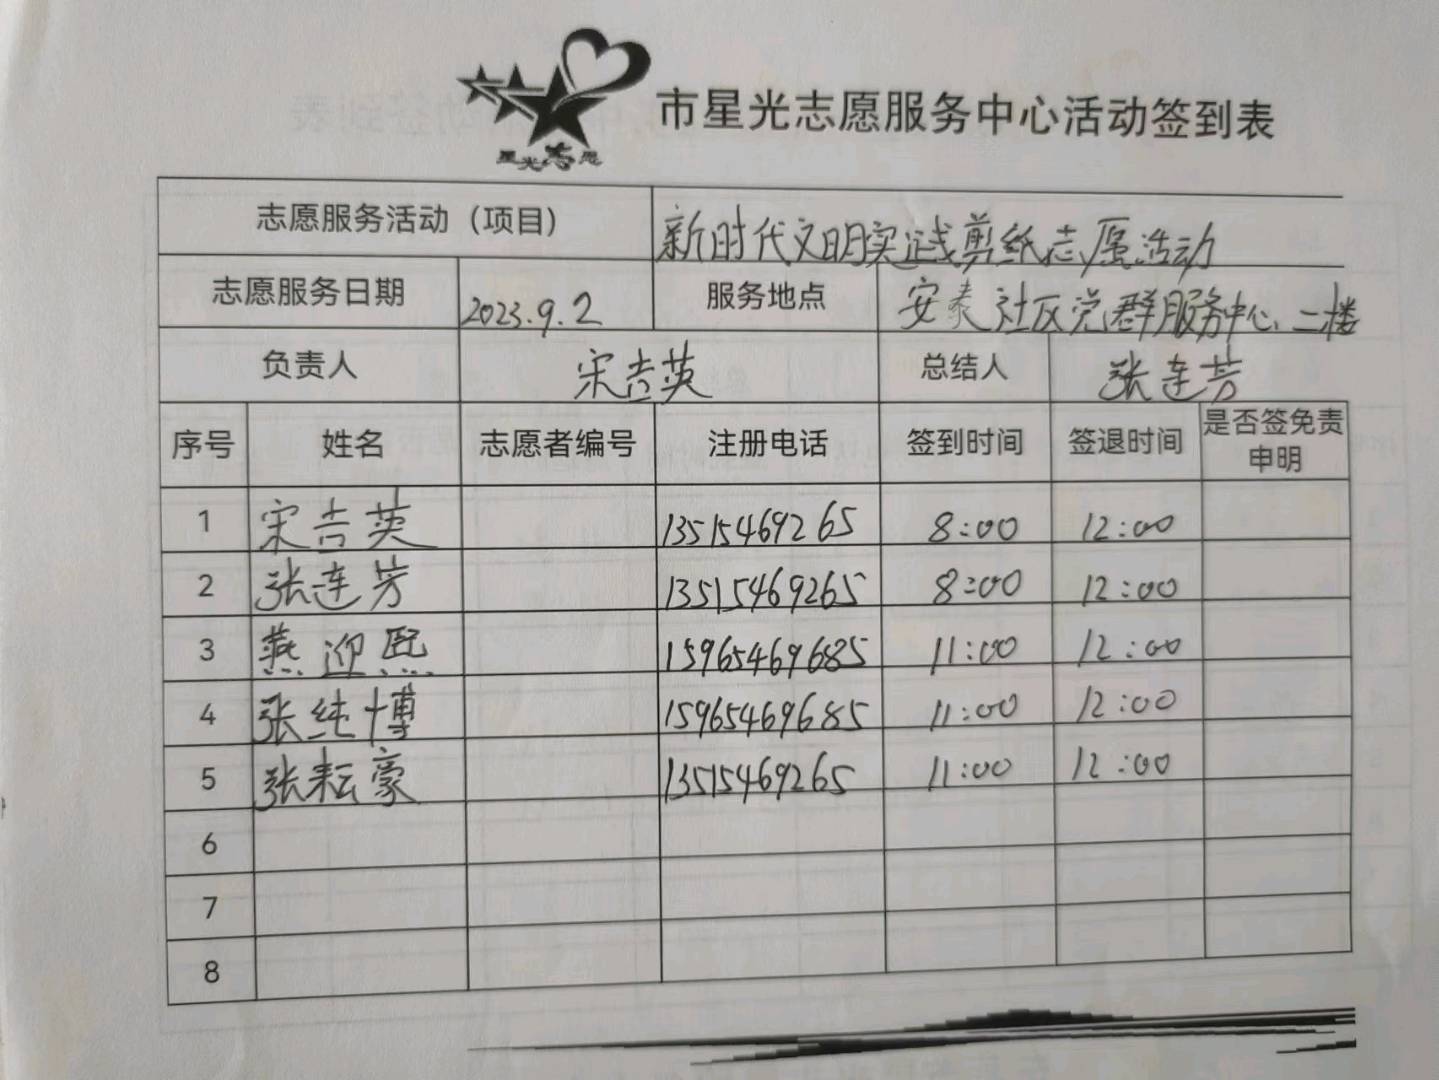 星光志愿
市星光志愿服务中心活动签到表
志愿服务活动（项目） 新时代文明实践剪纸志愿活动
志愿服务日期 2023.9.2 服务地点 安泰社区党群服务中心二楼
负责人 宋吉英 总结人 张连芳
序号 姓名 志愿者编号 注册电话 签到时间 签退时间 是否签免责申明
1 宋吉英 13515469265 8:00 12:00
2 张连芳 13515469265 8:00 12:00
3 燕迎熙 15965469685 11:00 12:00
4 张纯博 15965469685 11:00 12:00
5 张耘豪 13515469265 11:00 12:00
6
7
8